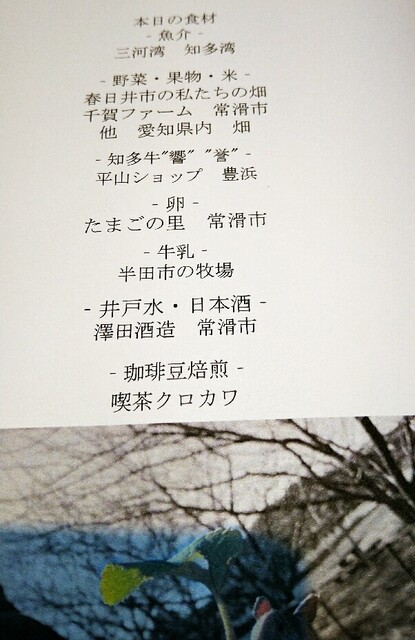 本日の食材
- 魚介 -
三河湾　知多湾
- 野菜・果物・米 -
春日井市の私たちの畑
千賀ファーム　常滑市
他　愛知県内　畑
- 知多牛"響" "誉" -
平山ショップ　豊浜
- 卵 -
たまごの里　常滑市
- 牛乳 -
半田市の牧場
- 井戸水・日本酒 -
澤田酒造　常滑市
- 珈琲豆焙煎 -
喫茶クロカワ